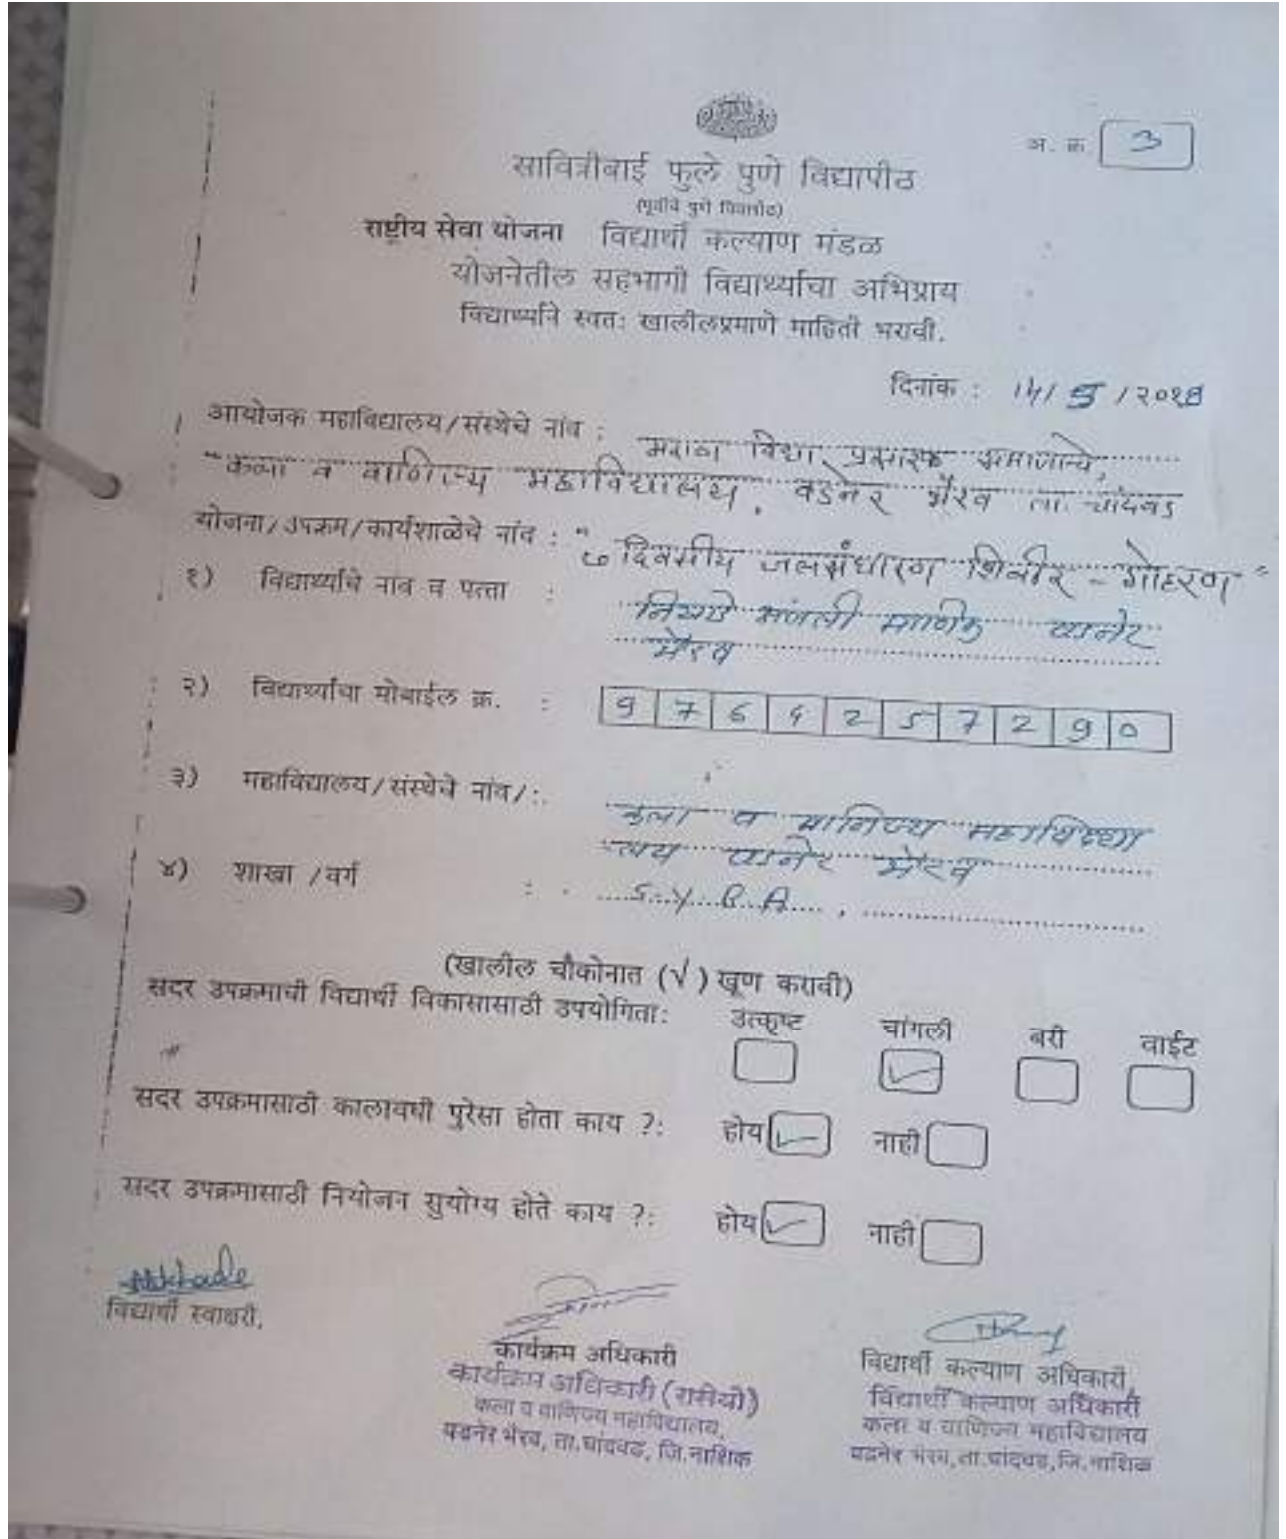 अ. क्र. 3
सावित्रीबाई फुले पुणे विद्यापीठ
(पूर्वीचे पुणे विद्यापीठ)
राष्ट्रीय सेवा योजना विद्यार्थी कल्याण मंडळ
योजनेतील सहभागी विद्यार्थ्यांचा अभिप्राय
विद्यार्थ्याने स्वतः खालीलप्रमाणे माहिती भरावी.
दिनांक :
आयोजक महाविद्यालय/संस्थेचे नांव : मराठा विद्या प्रसारक समाजाचे,
"कला व वाणिज्य महाविद्यालय, वडनेर भैरव ता. चांदवड
योजना/उपक्रम/कार्यशाळेचे नांव : "७ दिवसीय जलसंधारण शिबीर - गोहरण"
१) विद्यार्थ्याचे नाव व पत्ता :
भैरव
२) विद्यार्थ्याचा मोबाईल क्र. : 9 7 6 6 2 5 7 2 9 0
३) महाविद्यालय/संस्थेचे नांव/:.
कला व वाणिज्य महाविद्या
लय वडनेर भैरव
४) शाखा /वर्ग : S.Y.B.A.
(खालील चौकोनात (√) खूण करावी)
सदर उपक्रमाची विद्यार्थी विकासासाठी उपयोगिता: उत्कृष्ट चांगली बरी वाईट
सदर उपक्रमासाठी कालावधी पुरेसा होता काय ?: होय नाही
सदर उपक्रमासाठी नियोजन सुयोग्य होते काय ?: होय नाही
विद्यार्थी स्वाक्षरी.
कार्यक्रम अधिकारी
कार्यक्रम अधिकारी (रासेयो)
कला व वाणिज्य महाविद्यालय,
वडनेर भैरव, ता.चांदवड, जि.नाशिक
विद्यार्थी कल्याण अधिकारी,
विद्यार्थी कल्याण अधिकारी
कला व वाणिज्य महाविद्यालय
वडनेर भैरव,ता.चांदवड,जि.नाशिक